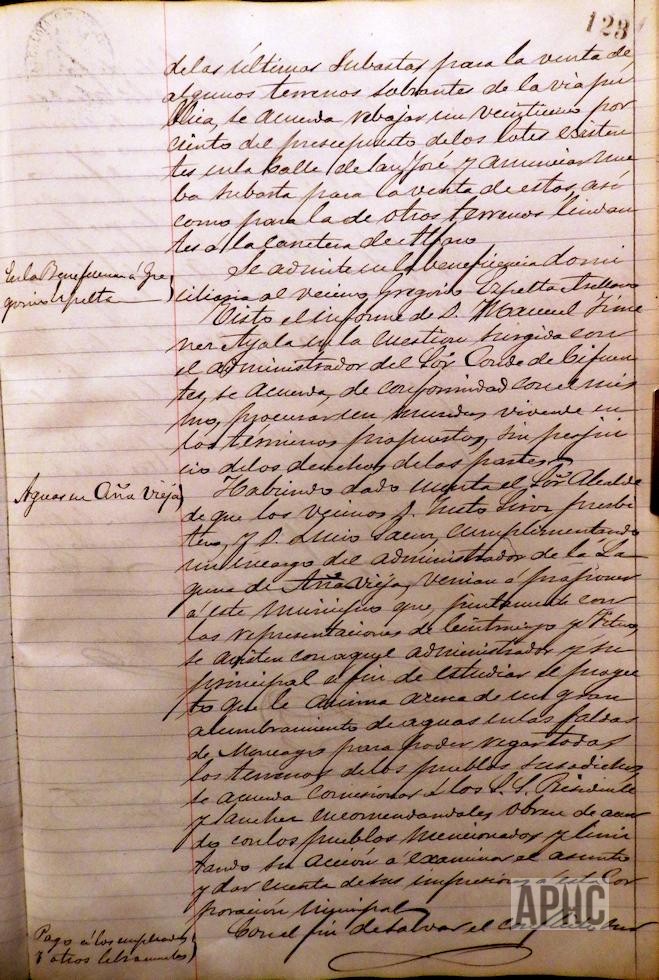 123
de las últimas subastas para la venta de
algunos terrenos sobrantes de la via pu
blica, se acuerda rebajar un veinticinco por
ciento del presupuesto de los lotes existen
tes en la Calle de San José y anunciar nue
ba subasta para la venta de estos, así
como para la de otros terrenos lindan
tes a la carretera de Alfaro
En la Beneficencia á Gre
gorio Ezpelta
Se admite en la beneficencia domi
ciliaria al vecino Gregorio Ezpelta Arellano
Visto el informe de D. Manuel Jime
nez Ayala en la cuestion surgida con
el administrador del Sõr Conde de Cifuen
tes, se acuerda, de conformidad con el mis
mo, procurar un modus vivendi en
los términos propuestos, sin perjui
cio de los derechos de las partes
Aguas en Aña Vieja
Habiendo dado cuenta el Sõr Alcalde
de que los vecinos D. Presbi
tero, y D. Luis Saenz, cumplimentando
un encargo del administrador de la La
guna de Aña vieja, venian a proponer
á este municipio que, juntamente con
las representaciones de Cintruenigo y Fitero,
se avisten con aquel administrador y su
principal a fin de estudiar el proyec
to que le anima acerca de un gran
alumbramiento de aguas en las faldas
de Moncayo para poder regar todos
los terrenos de los pueblos susodichos,
se acuerda comisionar a los S.S. Presidente
y Sanchez encomendandoles obren de acuer
do con los pueblos mencionados y limi
tando su acción a examinar el asunto
y dar cuenta de sus impresiones a esta Cor
poración Municipal
APHC
Pago á los empleados
y otros libramientos
Con el fin de salvar el conflicto